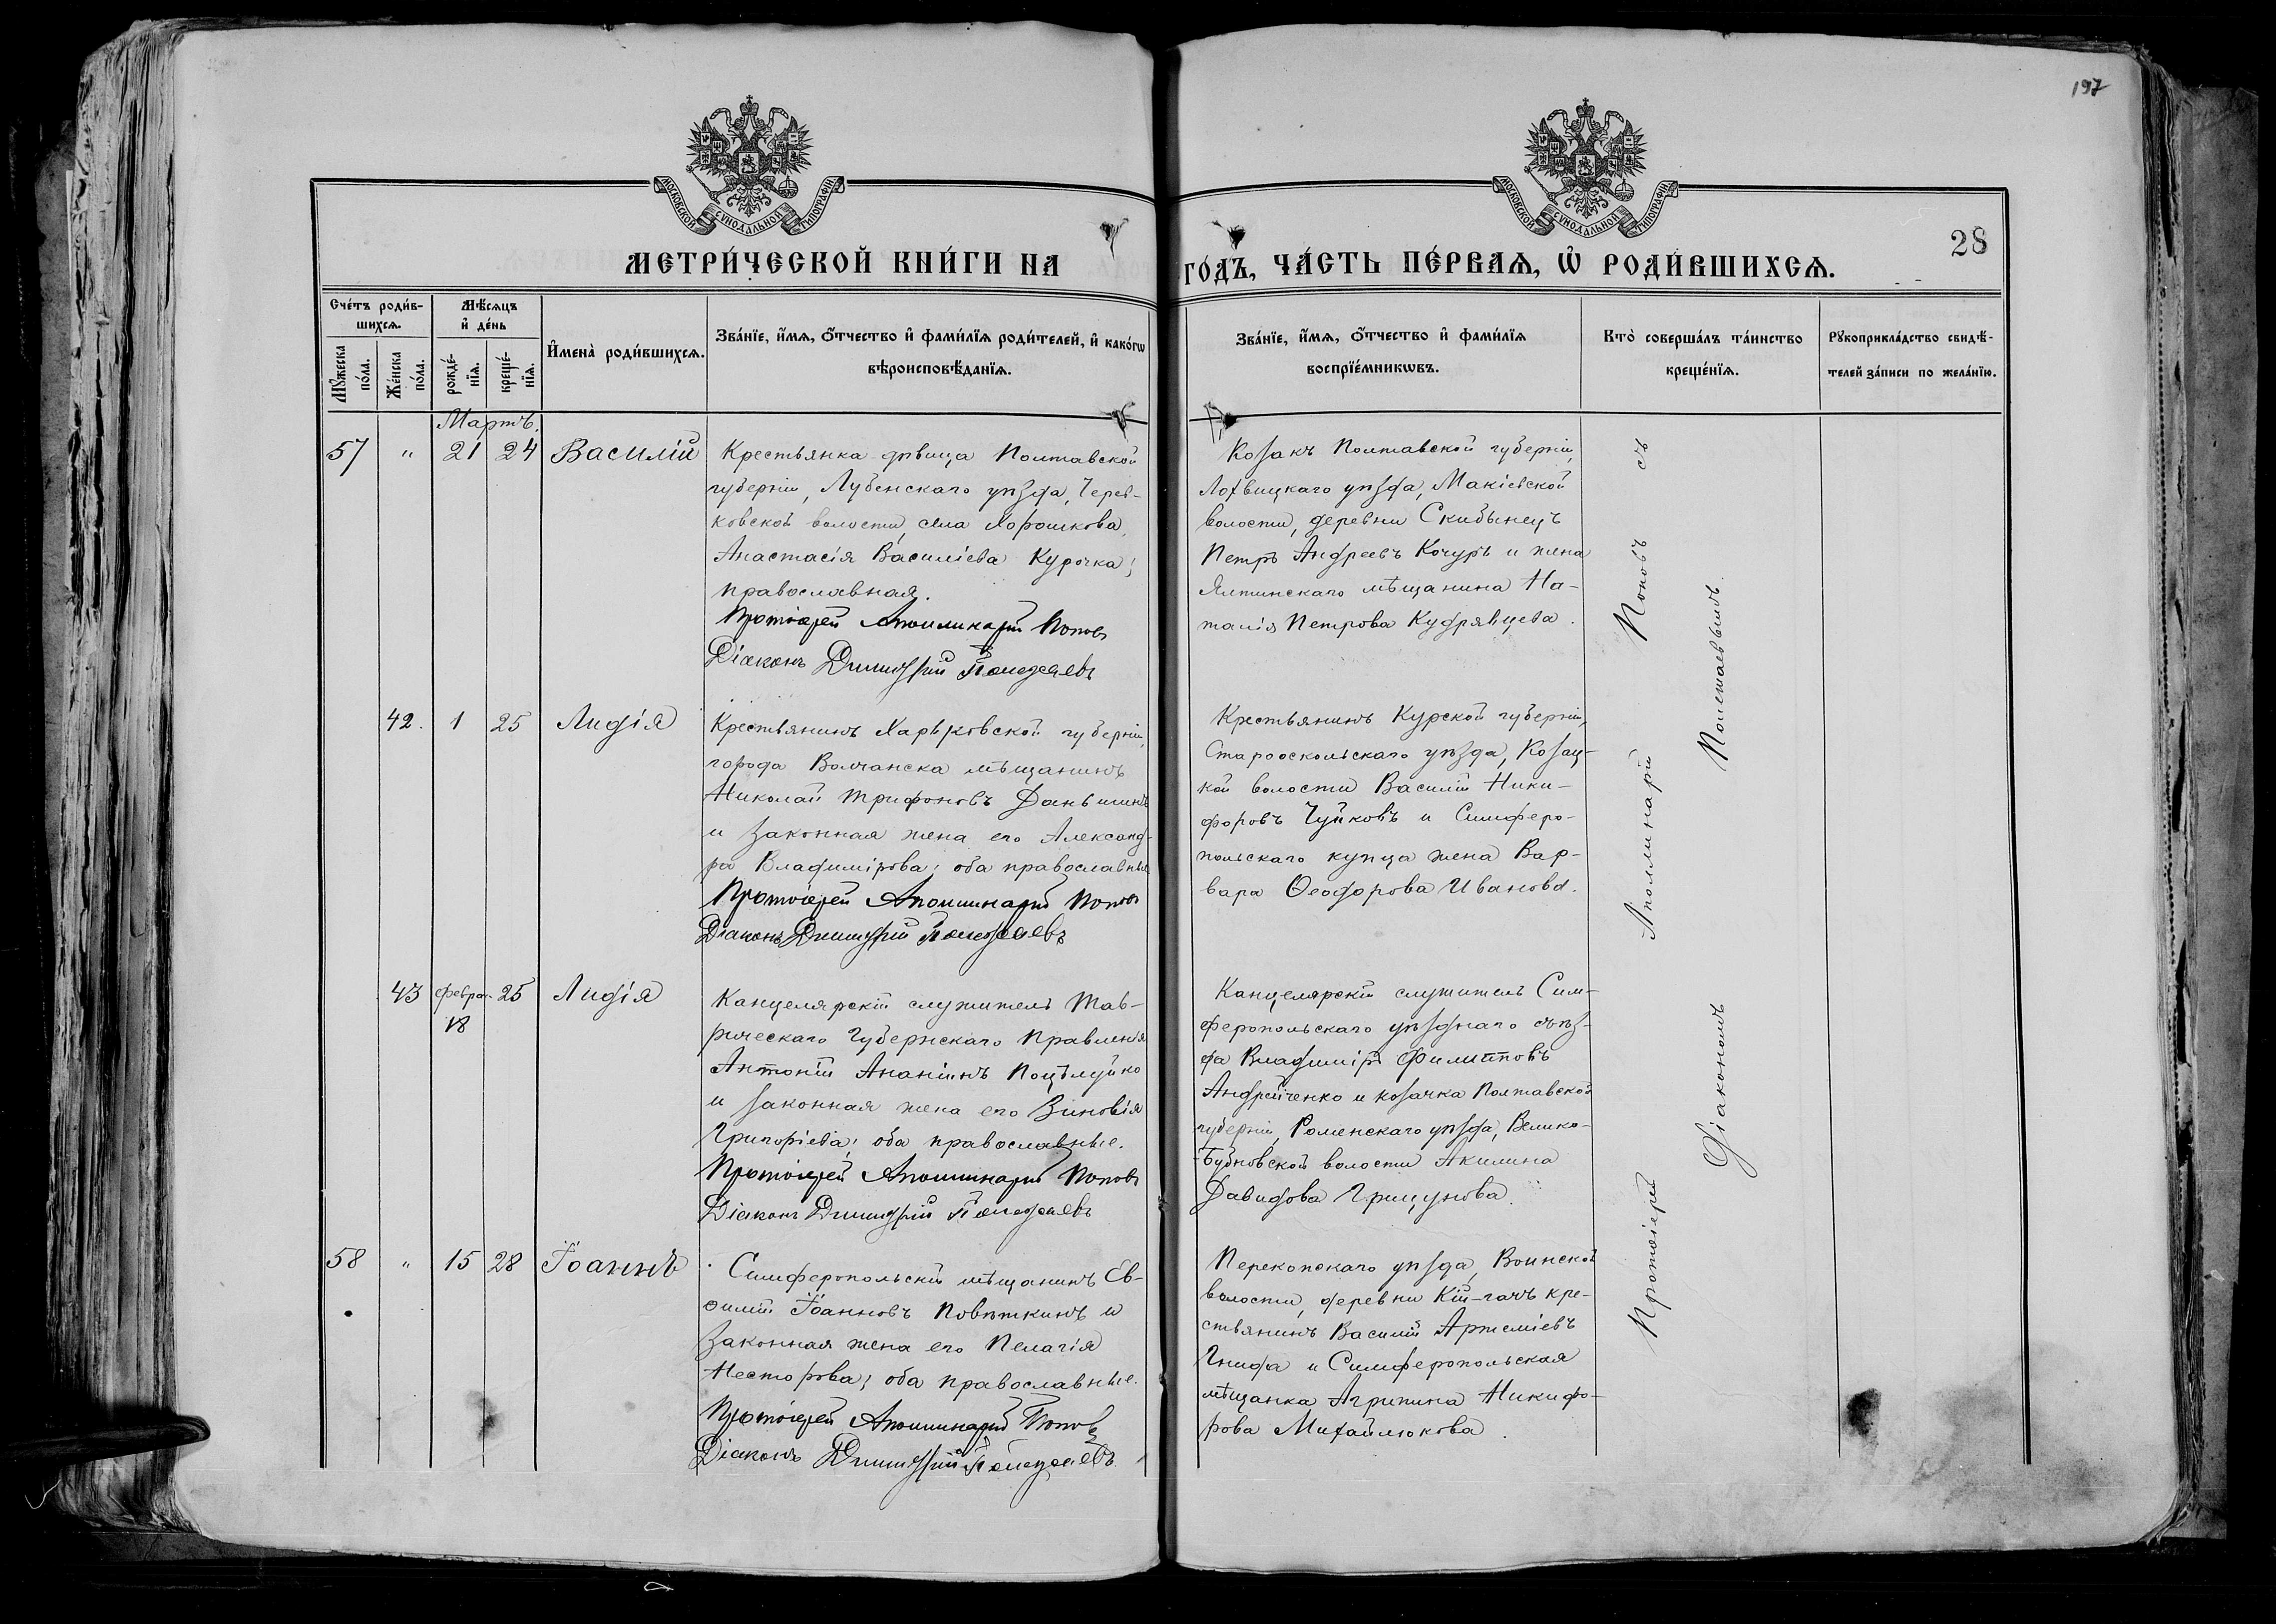 197
МОСКОВСКОЙ СѴНОДАЛЬНОЙ ТИПОГРАФІИ
МОСКОВСКОЙ СѴНОДАЛЬНОЙ ТИПОГРАФІИ
28
МЕТРИ́ЧЕСКОЙ КНИ́ГИ НА
ГО́ДЪ, ЧА́СТЬ ПЕ́РВАѦ, Ѡ҆ РОДИ́ВШИХСѦ.
Сче́тъ роди́в-
шихсѧ.
Мꙋ́жеска
по́ла.
Же́нска
по́ла.
Мѣ́сѧцъ
и҆ де́нь
рожде́-
нїѧ.
креще́-
нїѧ.
И҆мена̀ роди́вшихсѧ.
Зва́нїе, и҆́мѧ, ѻ҆́тчество и҆ фами́лїѧ роди́телей, и҆ како́гѡ
вѣроисповѣ́данїѧ.
Зва́нїе, и҆́мѧ, ѻ҆́тчество и҆ фами́лїѧ
воспрїе́мникѡвъ.
Кто̀ соверша́лъ та́инство
креще́нїѧ.
Рꙋкоприкла́дство свидѣ́-
телей за́писи по жела́нїю.
Мартъ.
57 " 21 24 Василій
Крестьянка-дѣвица Полтавской
губерніи, Лубенскаго уѣзда, Черев-
ковской волости, села Хорошкова,
Анастасія Василіева Курочка;
православная.
Протоіерей Аполлинарій Поповъ
Діаконъ Димитрій
Козакъ Полтавской губерніи,
Лохвицкаго уѣзда, Макіевской
волости, деревни Скибынецъ
Петръ Андреевъ Кочуръ и жена
Ялтинскаго мѣщанина На-
талія Петрова Кудрявцева.
42. 1 25 Лидія
Крестьянинъ Харьковской губерніи,
города Волчанска мѣщанинъ
Николай Трифоновъ Даньшинъ
и законная жена его Александ-
ра Владимірова; оба православные
Протоіерей Аполлинарій Поповъ
Діаконъ Димитрій
Крестьянинъ Курской губерніи,
Старооскольскаго уѣзда, Козац-
кой волости Василій Ники-
форовъ Чуйковъ и Симферо-
польскаго купца жена Вар-
вара Ѳеодорова Иванова.
43 февра. 25 Лидія
18
Канцелярскій служитель Тав-
рическаго Губернскаго Правленія
Антоній Ананіинъ Поцѣлуйко
и законная жена его Зиновія
Григоріева; оба православные.
Протоіерей Аполлинарій Поповъ
Діаконъ Димитрій
Канцелярскій служитель Сим-
феропольскаго уѣзднаго съѣз-
да Владиміръ Филипповъ
Андрейченко и козачка Полтавской
губерніи, Роменскаго уѣзда, Велико-
Бубновской волости Акилина
Давидова Грицунова.
58 " 15 28 Іоаннъ
Симферопольскій мѣщанинъ Ев-
ѳимій Іоанновъ Повѣткинъ и
законная жена его Пелагія
Несторова; оба православные.
Протоіерей Аполлинарій Поповъ
Діаконъ Димитрій
Перекопскаго уѣзда, Воинской
волости, деревни Кій-гачъ кре-
стьянинъ Василій Артеміевъ
Гнида и Симферопольская
мѣщанка Агрипина Никифо-
рова Михайлюкова.
Протоіерей Аполлинарій Поповъ съ
Діакономъ